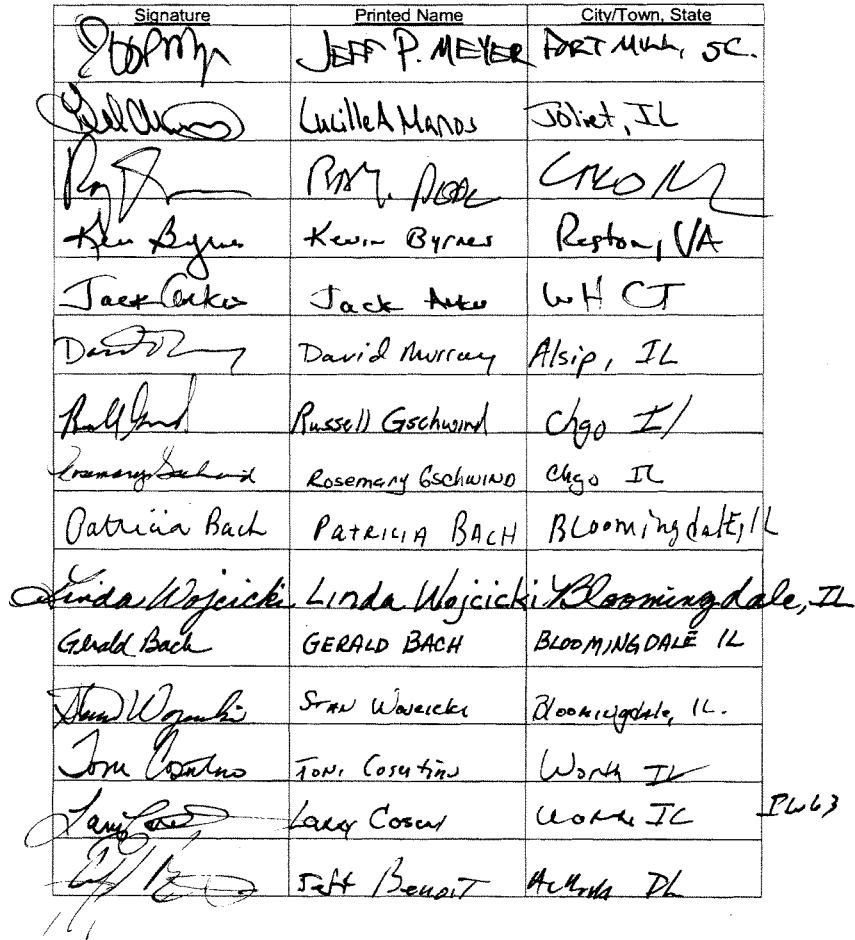 Signature Printed Name City/Town, State
JEFF P. MEYER FORT MILL, SC.
Lucille A Manos Joliet, IL
RAY.
Ken Byrnes Kevin Byrnes Reston, VA
Jack Jack WH CT
David Murray Alsip, IL
Russell Gschwind Chgo Il
Rosemary Gschwind Rosemary Gschwind Chgo IL
Patricia Bach PATRICIA BACH Bloomingdale, IL
Linda Wojcicki Linda Wojcicki Bloomingdale, IL
Gerald Bach GERALD BACH BLOOMINGDALE IL
Stan Wojcicki Bloomingdale, IL.
Toni Cosentino Worth IL
Larry Worth IL
Jeff Benoit